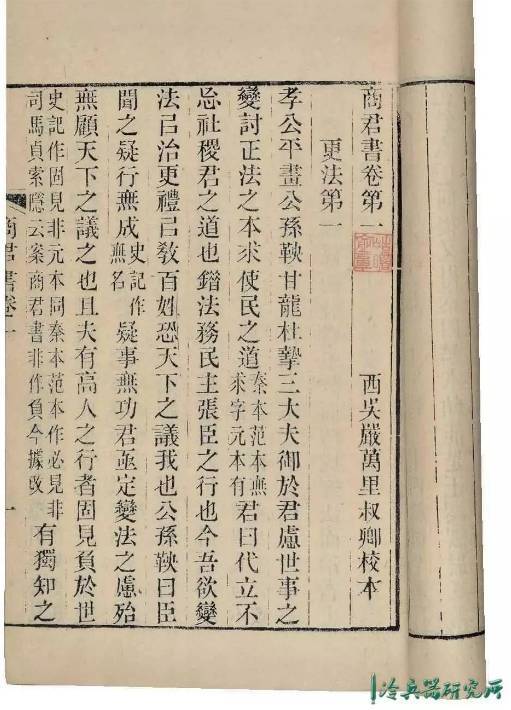 商君書卷第一
西吳嚴萬里叔卿校本
更法第一
孝公平畫公孫鞅甘龍杜摯三大夫御於君慮世事之
變討正法之本求使民之道秦本范本無求字元本有君曰代立不
忘社稷君之道也錯法務民主張臣之行也今吾欲變
法㠯治更禮㠯敎百姓恐天下之議我也公孫鞅曰臣
聞之疑行無成史記作無名疑事無功君亟定變法之慮殆
無顧天下之議之也且夫有高人之行者固見負於世
史記作固見非元本同秦本范本作必見非司馬貞索隱云案商君書非作負今據改有獨知之
商君書卷一
一
冷兵器研究所